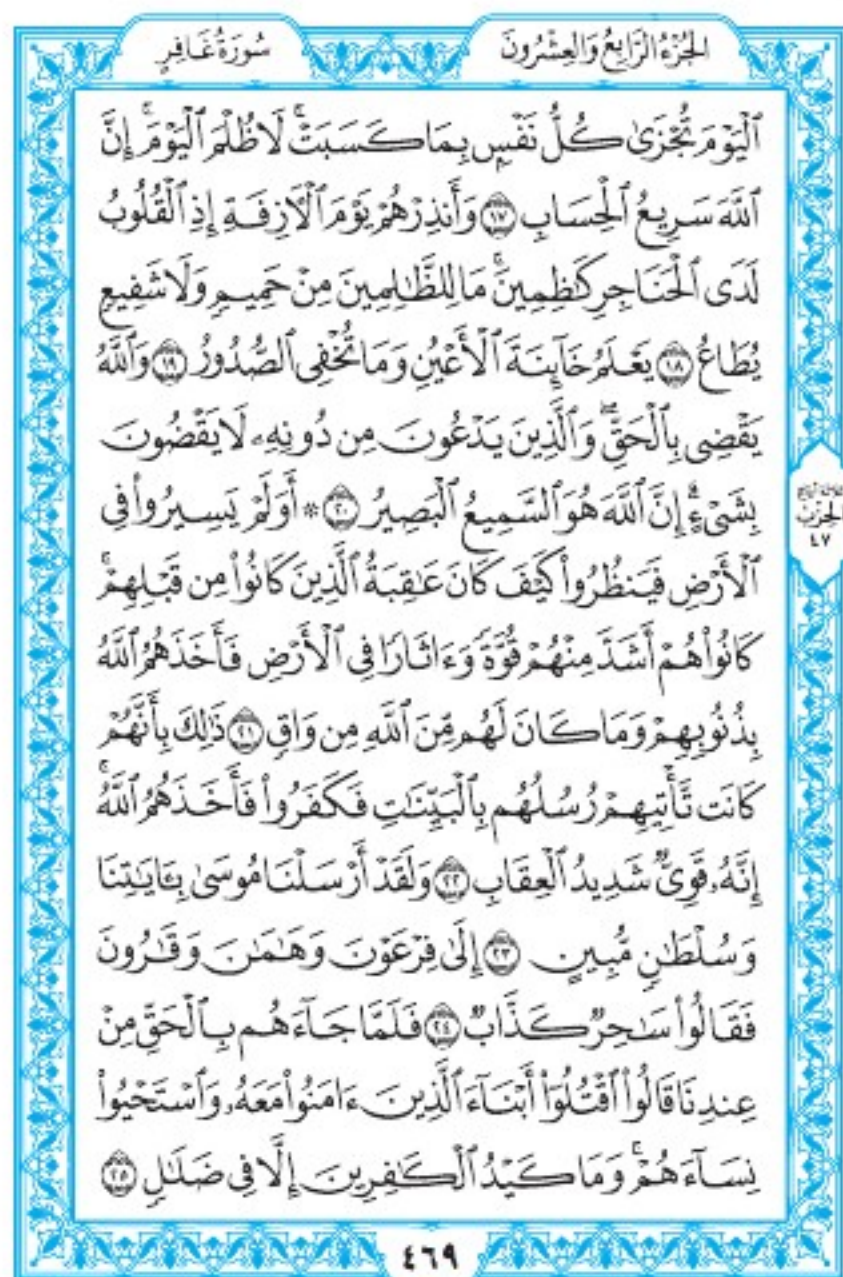 الجُزْءُ الرَّابِعُ وَالعِشْرُونَ
سُورَةُ غَافِرٍ
ٱلۡيَوۡمَ تُجۡزَىٰ كُلُّ نَفۡسِۭ بِمَا كَسَبَتۡۚ لَا ظُلۡمَ ٱلۡيَوۡمَۚ إِنَّ
ٱللَّهَ سَرِيعُ ٱلۡحِسَابِ ١٧ وَأَنذِرۡهُمۡ يَوۡمَ ٱلۡأٓزِفَةِ إِذِ ٱلۡقُلُوبُ
لَدَى ٱلۡحَنَاجِرِ كَٰظِمِينَۚ مَا لِلظَّٰلِمِينَ مِنۡ حَمِيمٖ وَلَا شَفِيعٖ
يُطَاعُ ١٨ يَعۡلَمُ خَآئِنَةَ ٱلۡأَعۡيُنِ وَمَا تُخۡفِي ٱلصُّدُورُ ١٩ وَٱللَّهُ
يَقۡضِي بِٱلۡحَقِّۖ وَٱلَّذِينَ يَدۡعُونَ مِن دُونِهِۦ لَا يَقۡضُونَ
بِشَيۡءٍۗ إِنَّ ٱللَّهَ هُوَ ٱلسَّمِيعُ ٱلۡبَصِيرُ ٢٠ ۞ أَوَلَمۡ يَسِيرُواْ فِي
ٱلۡأَرۡضِ فَيَنظُرُواْ كَيۡفَ كَانَ عَٰقِبَةُ ٱلَّذِينَ كَانُواْ مِن قَبۡلِهِمۡۚ
كَانُواْ هُمۡ أَشَدَّ مِنۡهُمۡ قُوَّةٗ وَءَاثَارٗا فِي ٱلۡأَرۡضِ فَأَخَذَهُمُ ٱللَّهُ
بِذُنُوبِهِمۡ وَمَا كَانَ لَهُم مِّنَ ٱللَّهِ مِن وَاقٖ ٢١ ذَٰلِكَ بِأَنَّهُمۡ
كَانَت تَّأۡتِيهِمۡ رُسُلُهُم بِٱلۡبَيِّنَٰتِ فَكَفَرُواْ فَأَخَذَهُمُ ٱللَّهُۚ
إِنَّهُۥ قَوِيّٞ شَدِيدُ ٱلۡعِقَابِ ٢٢ وَلَقَدۡ أَرۡسَلۡنَا مُوسَىٰ بِـَٔايَٰتِنَا
وَسُلۡطَٰنٖ مُّبِينٍ ٢٣ إِلَىٰ فِرۡعَوۡنَ وَهَٰمَٰنَ وَقَٰرُونَ
فَقَالُواْ سَٰحِرٞ كَذَّابٞ ٢٤ فَلَمَّا جَآءَهُم بِٱلۡحَقِّ مِنۡ
عِندِنَا قَالُواْ ٱقۡتُلُوٓاْ أَبۡنَآءَ ٱلَّذِينَ ءَامَنُواْ مَعَهُۥ وَٱسۡتَحۡيُواْ
نِسَآءَهُمۡۚ وَمَا كَيۡدُ ٱلۡكَٰفِرِينَ إِلَّا فِي ضَلَٰلٖ ٢٥
الحِزْب
٤٧
٤٦٩